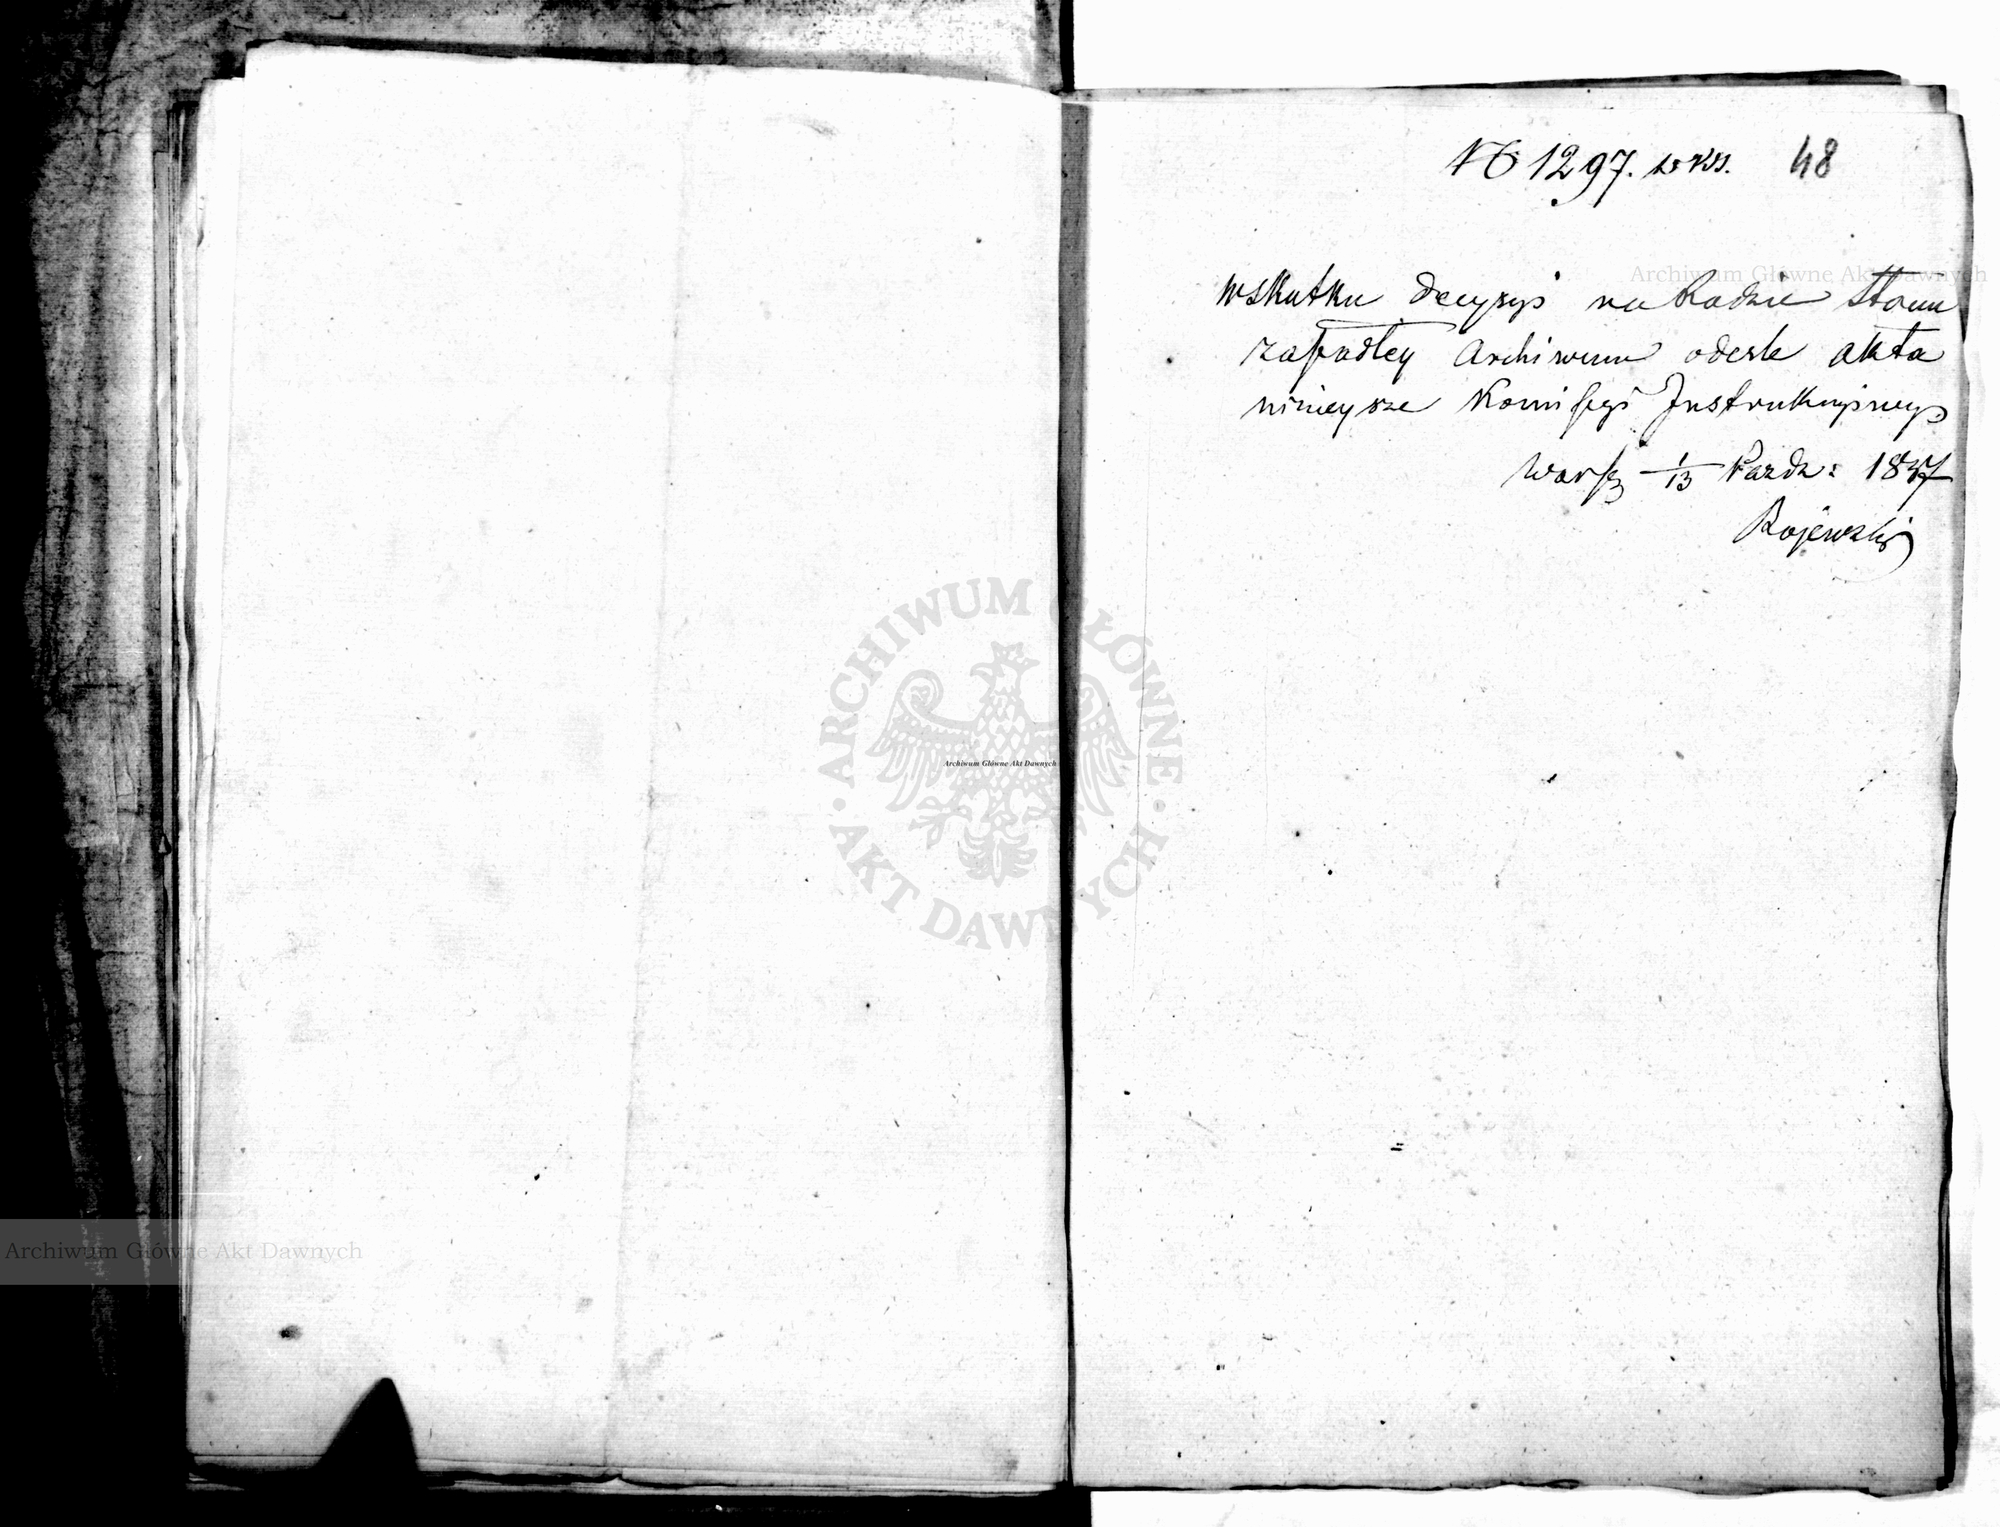 № 1297. 48
wskutku decyzyi na Radzie Stanu
zapadłey Archiwum odeśle akta
ninieysze Kommissyi Instrukcyiney
Warsz 1/13 Pazdz: 1837
Rajewski
ARCHIWUM GŁÓWNE AKT DAWNYCH
Archiwum Główne Akt Dawnych
Archiwum Główne Akt Dawnych
Archiwum Główne Akt Dawnych